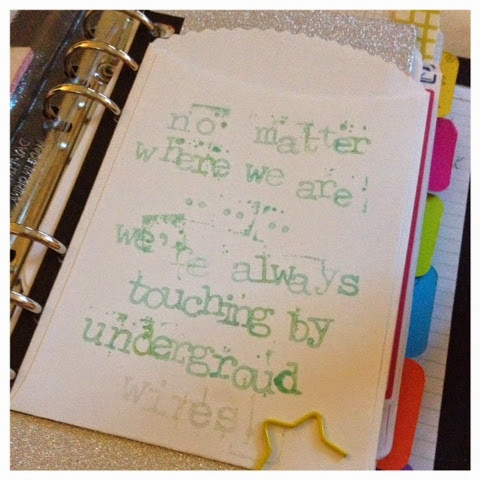 no matter
where we are
......
we're always
touching by
undergroud
wires